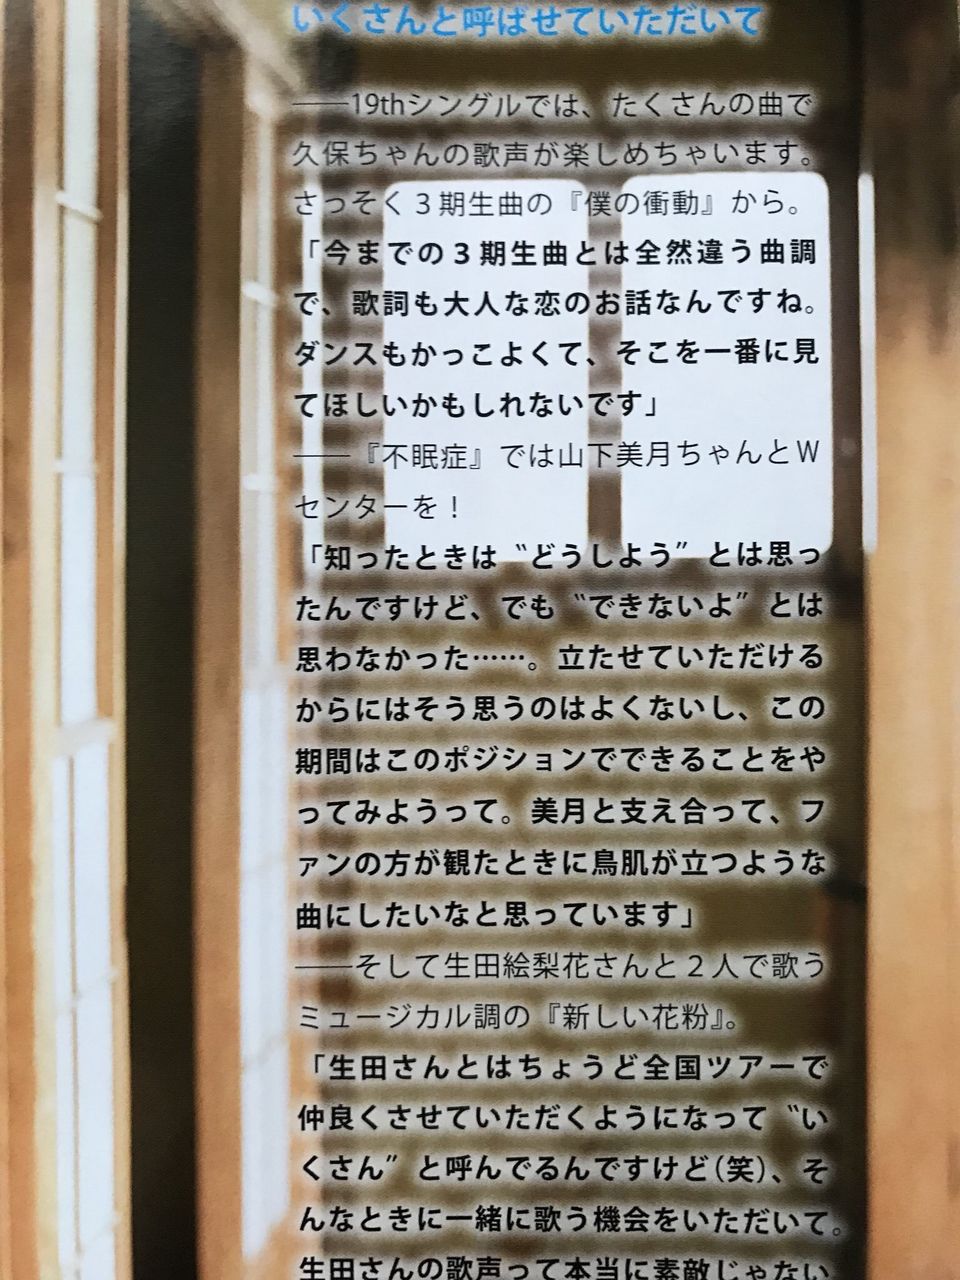 いくさんと呼ばせていただいて
――19thシングルでは、たくさんの曲で
久保ちゃんの歌声が楽しめちゃいます。
さっそく３期生曲の『僕の衝動』から。
「今までの３期生曲とは全然違う曲調
で、歌詞も大人な恋のお話なんですね。
ダンスもかっこよくて、そこを一番に見
てほしいかもしれないです」
――『不眠症』では山下美月ちゃんとＷ
センターを！
「知ったときは〝どうしよう〞とは思っ
たんですけど、でも〝できないよ〞とは
思わなかった……。立たせていただける
からにはそう思うのはよくないし、この
期間はこのポジションでできることをや
ってみようって。美月と支え合って、フ
ァンの方が観たときに鳥肌が立つような
曲にしたいなと思っています」
――そして生田絵梨花さんと２人で歌う
ミュージカル調の『新しい花粉』。
「生田さんとはちょうど全国ツアーで
仲良くさせていただくようになって〝い
くさん〞と呼んでるんですけど（笑）、そ
んなときに一緒に歌う機会をいただいて。
生田さんの歌声って本当に素敵じゃない